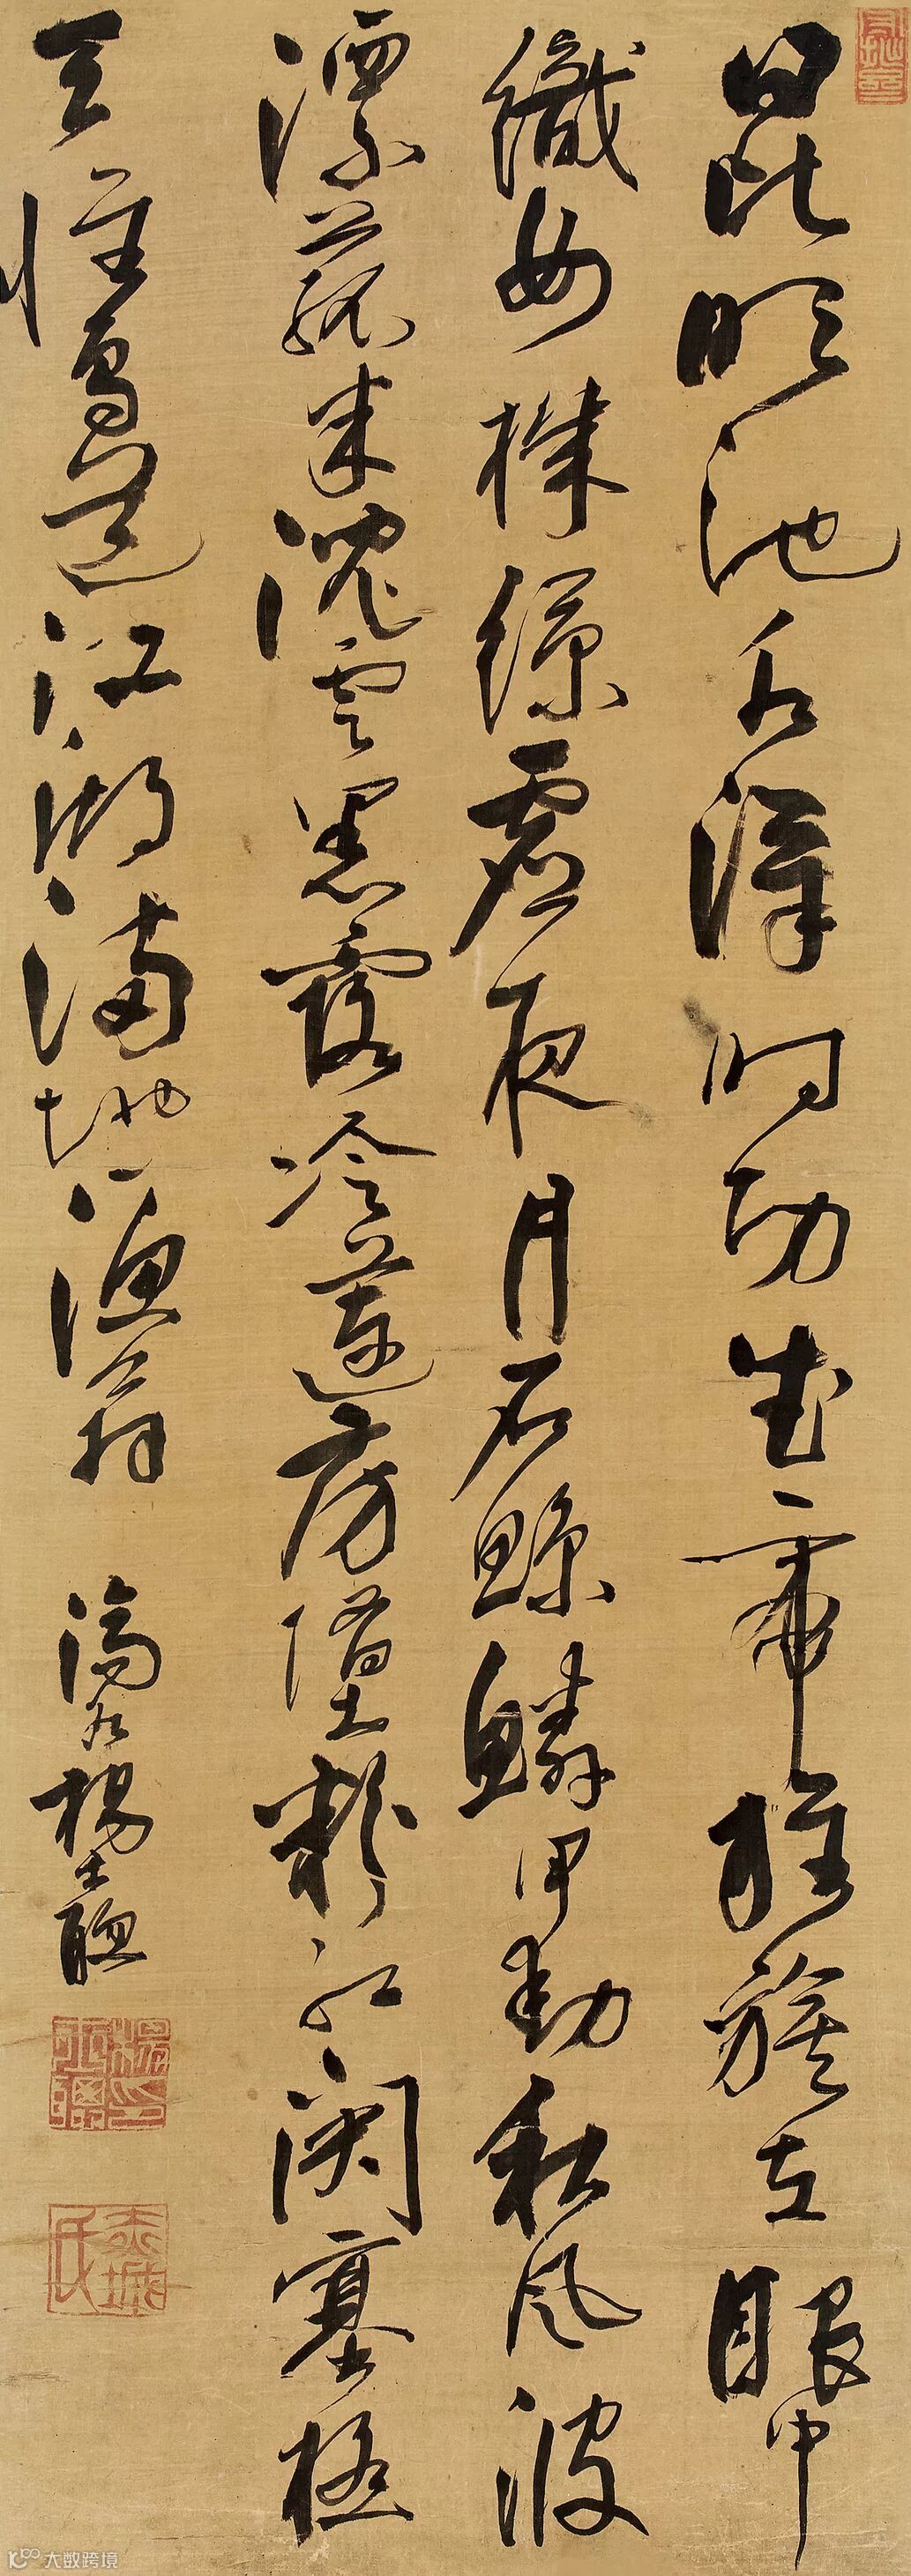 昆明池水漢時功武帝旌旗在眼中
織女機絲虛夜月石鯨鱗甲動秋風波
漂菰米沈雲黑露冷蓮房墜粉紅關塞極
天惟鳥道江湖滿地一漁翁
濟水楊士聰
楊印士聰
大数跨境